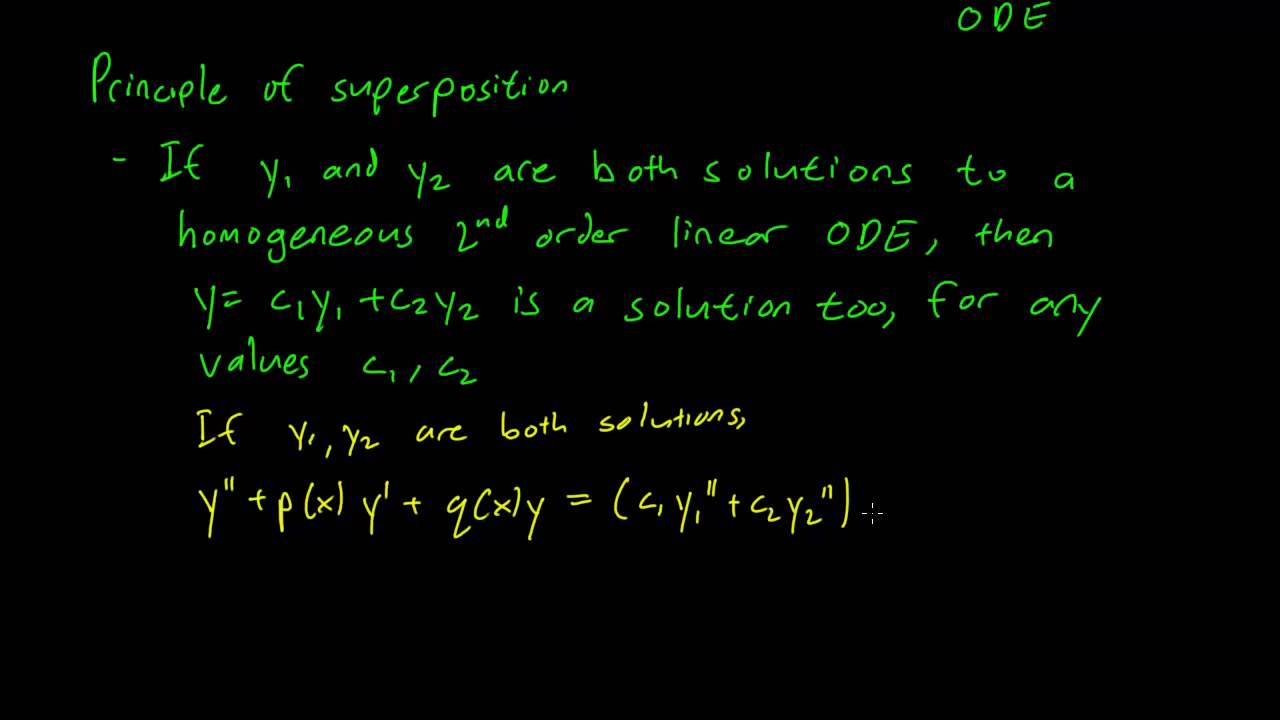 ODE
Principle of superposition
- If y₁ and y₂ are both solutions to a
homogeneous 2ⁿᵈ order linear ODE, then
y= c₁y₁ +c₂y₂ is a solution too, for any
values c₁, c₂
If y₁, y₂ are both solutions,
y" + p(x) y' + q(x)y = (c₁ y₁" + c₂y₂")